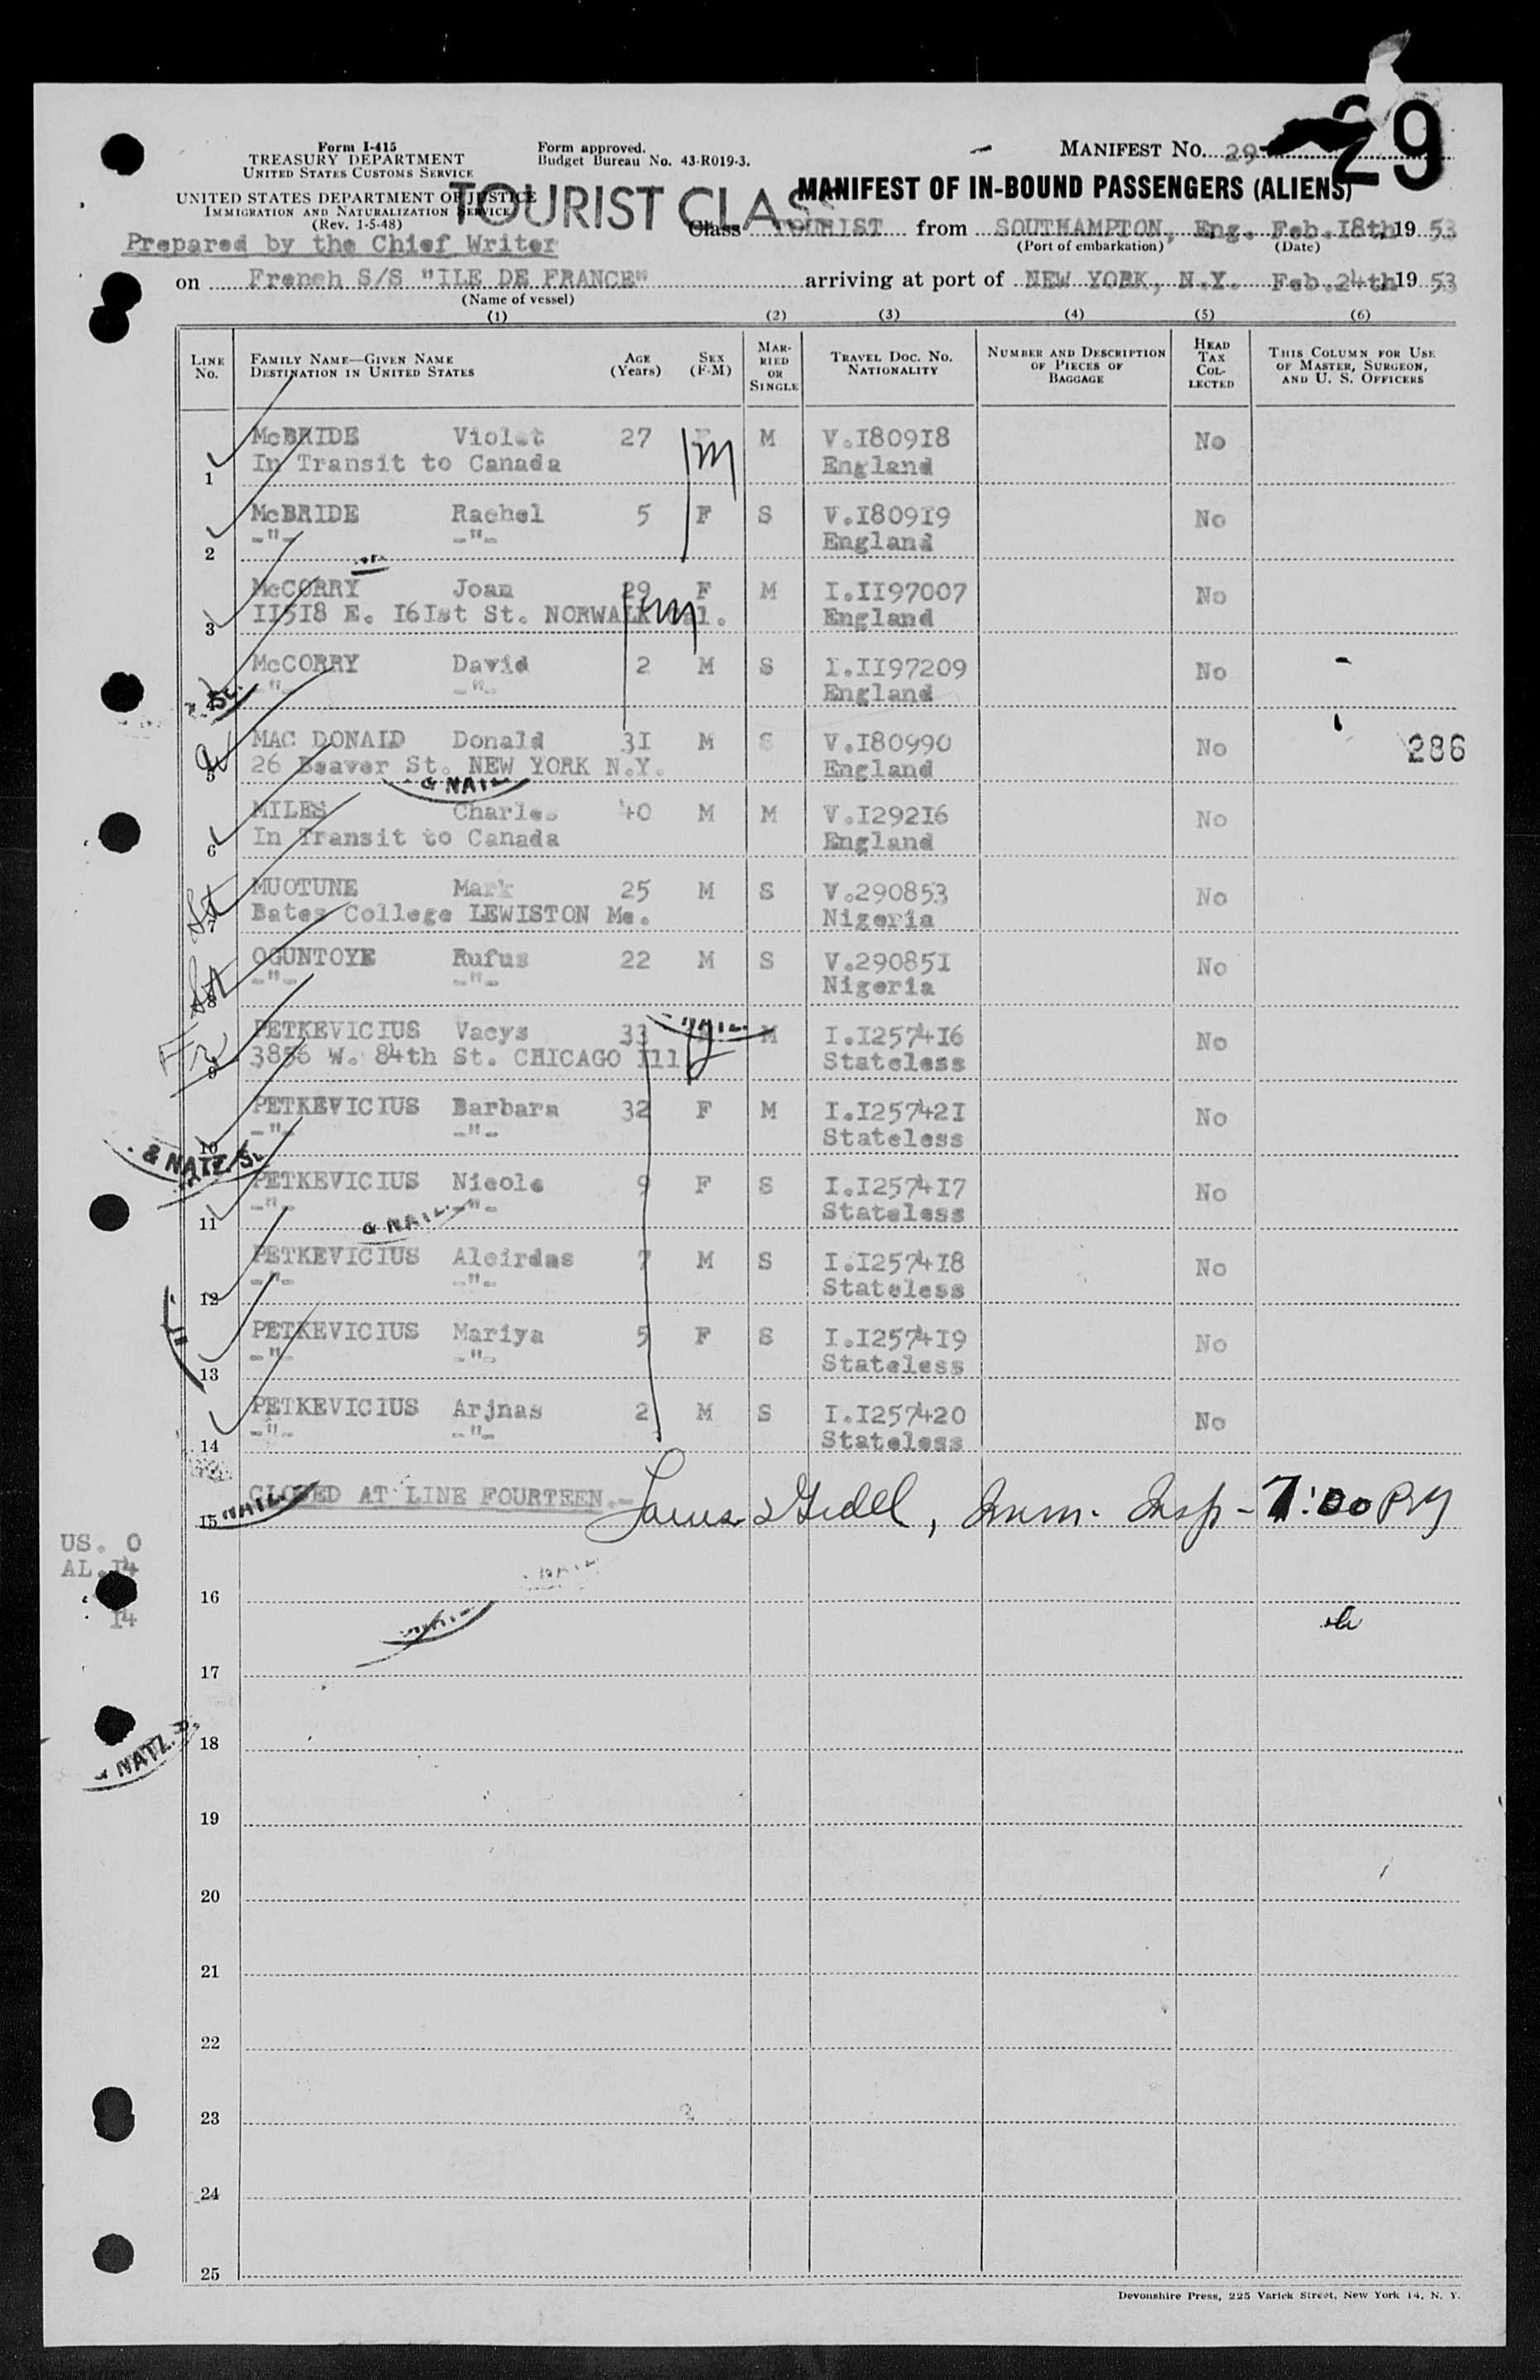 29
Form I-415
TREASURY DEPARTMENT
UNITED STATES CUSTOMS SERVICE
UNITED STATES DEPARTMENT OF JUSTICE
IMMIGRATION AND NATURALIZATION SERVICE
(Rev. 1-5-48)
Form approved.
Budget Bureau No. 43-R019-3.
MANIFEST NO. 29
TOURIST CLASS
MANIFEST OF IN-BOUND PASSENGERS (ALIENS)
Class TOURIST from SOUTHAMPTON, Eng. Feb.18th, 19 53
(Port of embarkation) (Date)
Prepared by the Chief Writer
on French S/S "ILE DE FRANCE" arriving at port of NEW YORK, N.Y. Feb.24th 19 53
(Name of vessel)
(1) (2) (3) (4) (5) (6)
LINE No. FAMILY NAME—GIVEN NAME DESTINATION IN UNITED STATES AGE (Years) SEX (F-M) MARRIED OR SINGLE TRAVEL DOC. NO. NATIONALITY NUMBER AND DESCRIPTION OF PIECES OF BAGGAGE HEAD TAX COLLECTED THIS COLUMN FOR USE OF MASTER, SURGEON, AND U. S. OFFICERS
McBRIDE Violet 27 M V.I80918 No
1 In Transit to Canada England
McBRIDE Rachel 5 F S V.I80919 No
2 -"- -"- England
McCORRY Joan 29 F M I.II97007 No
3 II518 E. I6Ist St. NORWALK Cal. England
McCORRY David 2 M S I.II97209 No
-"- -"- England
MAC DONALD Donald 3I M S V.I80990 No 286
5 26 Beaver St. NEW YORK N.Y. England
& NATZ
MILES Charles 40 M M V.I29216 No
6 In Transit to Canada England
MUOTUNE Mark 25 M S V.290853 No
Bates College LEWISTON Me. Nigeria
OGUNTOYE Rufus 22 M S V.29085I No
8 -"- -"- Nigeria
PETKEVICIUS Vacys 33 M I.I257416 No
9 3856 W. 84th St. CHICAGO Ill Stateless
PETKEVICIUS Barbara 32 F M I.I25742I No
10 -"- -"- Stateless
& NATZ
PETKEVICIUS Nicole 9 F S I.I257417 No
11 -"- -"- Stateless
PETKEVICIUS Alcirdas 7 M S I.I257418 No
12 -"- -"- Stateless
PETKEVICIUS Mariya 5 F S I.I257419 No
13 -"- -"- Stateless
PETKEVICIUS Arjnas 2 M S I.I257420 No
14 -"- -"- Stateless
15 CLOSED AT LINE FOURTEEN.- Imm. Insp - 7:00 PM
US. 0
AL. 14
14
16
17
18
& NATZ.
19
20
21
22
23
24
25
Devonshire Press, 225 Varick Street, New York 14, N. Y.